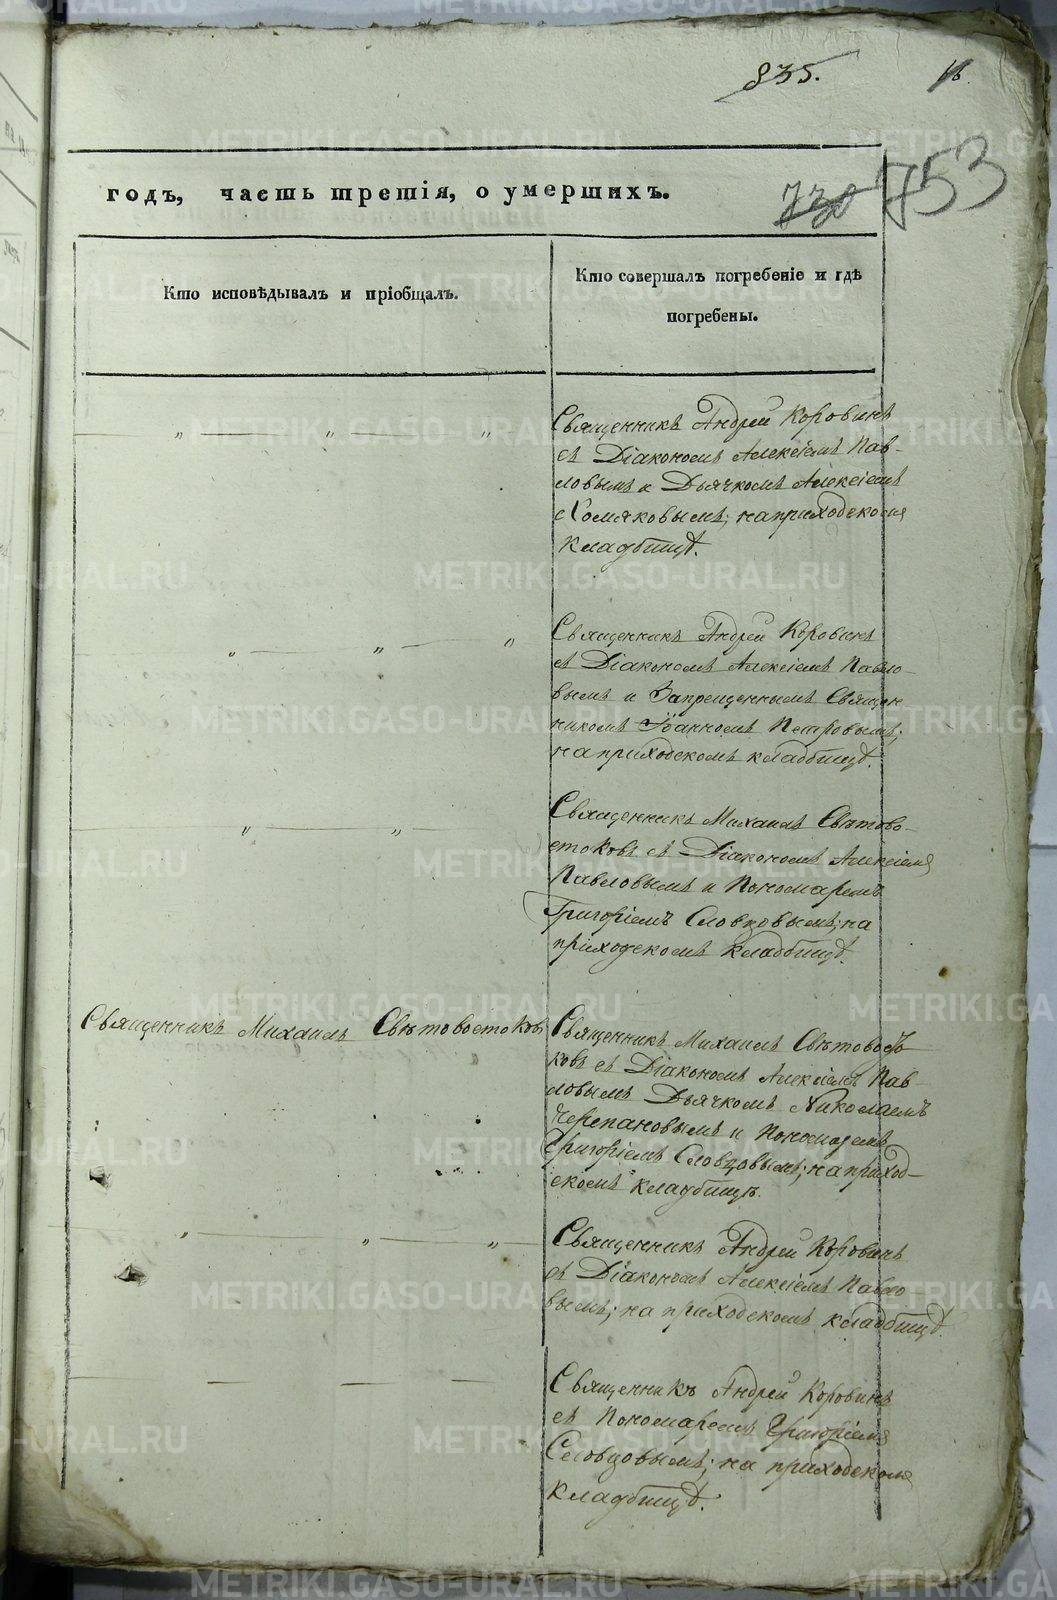 835.
16.
годъ, часть третія, о умершихъ.
730
753
Кто исповѣдывалъ и пріобщалъ.
Кто совершалъ погребеніе и гдѣ
погребены.
Священникъ Андрей Коровинъ
съ Діакономъ Алексіемъ Пав-
ловымъ и Дьячкомъ Алексіемъ
Хомяковымъ; на приходскомъ
кладбищѣ.
Священникъ Андрей Коровинъ
съ Діакономъ Алексіемъ Павло-
вымъ и Запрещеннымъ Священ
никомъ Іоанномъ Петровымъ;
на приходскомъ кладбищѣ.
Священникъ Михаилъ Свѣтово-
стоковъ съ Діакономъ Алексіемъ
Павловымъ и Пономаремъ
Григоріемъ Словцовымъ; на
приходскомъ кладбищѣ.
Священникъ Михаилъ Свѣтовостоковъ
Священникъ Михаилъ Свѣтовосто-
ковъ съ Діакономъ Алексіемъ Пав-
ловымъ Дьячкомъ Николаемъ
Черепановымъ и Пономаремъ
Григоріемъ Словцовымъ; на приход-
скомъ кладбищѣ.
Священникъ Андрей Коровинъ
съ Діакономъ Алексіемъ Павло
вымъ; на приходскомъ кладбищѣ.
Священникъ Андрей Коровинъ
съ Пономаремъ Григоріемъ
Словцовымъ; на приходскомъ
кладбищѣ.
METRIKI.GASO-URAL.RU